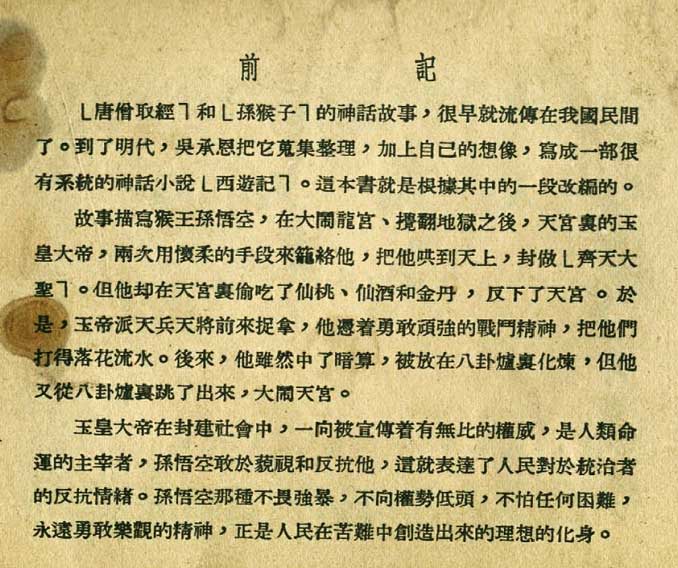 前記
「唐僧取經」和「孫猴子」的神話故事，很早就流傳在我國民間
了。到了明代，吳承恩把它蒐集整理，加上自己的想像，寫成一部很
有系統的神話小說「西遊記」。這本書就是根據其中的一段改編的。
故事描寫猴王孫悟空，在大鬧龍宮、攪翻地獄之後，天宮裏的玉
皇大帝，兩次用懷柔的手段來籠絡他，把他哄到天上，封做「齊天大
聖」。但他却在天宮裏偷吃了仙桃、仙酒和金丹，反下了天宮。於
是，玉帝派天兵天將前來捉拿，他憑着勇敢頑強的戰鬥精神，把他們
打得落花流水。後來，他雖然中了暗算，被放在八卦爐裏化煉，但他
又從八卦爐裏跳了出來，大鬧天宮。
玉皇大帝在封建社會中，一向被宣傳着有無比的權威，是人類命
運的主宰者，孫悟空敢於藐視和反抗他，這就表達了人民對於統治者
的反抗情緒。孫悟空那種不畏強暴，不向權勢低頭，不怕任何困難，
永遠勇敢樂觀的精神，正是人民在苦難中創造出來的理想的化身。